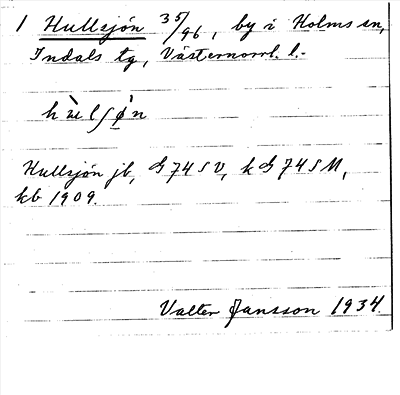 1 Hullsjön 35/96, by i Holms sn,
Indals tg, Västernorrl. l.
Hullsjön jb, G 74 S V, k G 74 S M,
kb 1909.
Valter Jansson 1934.